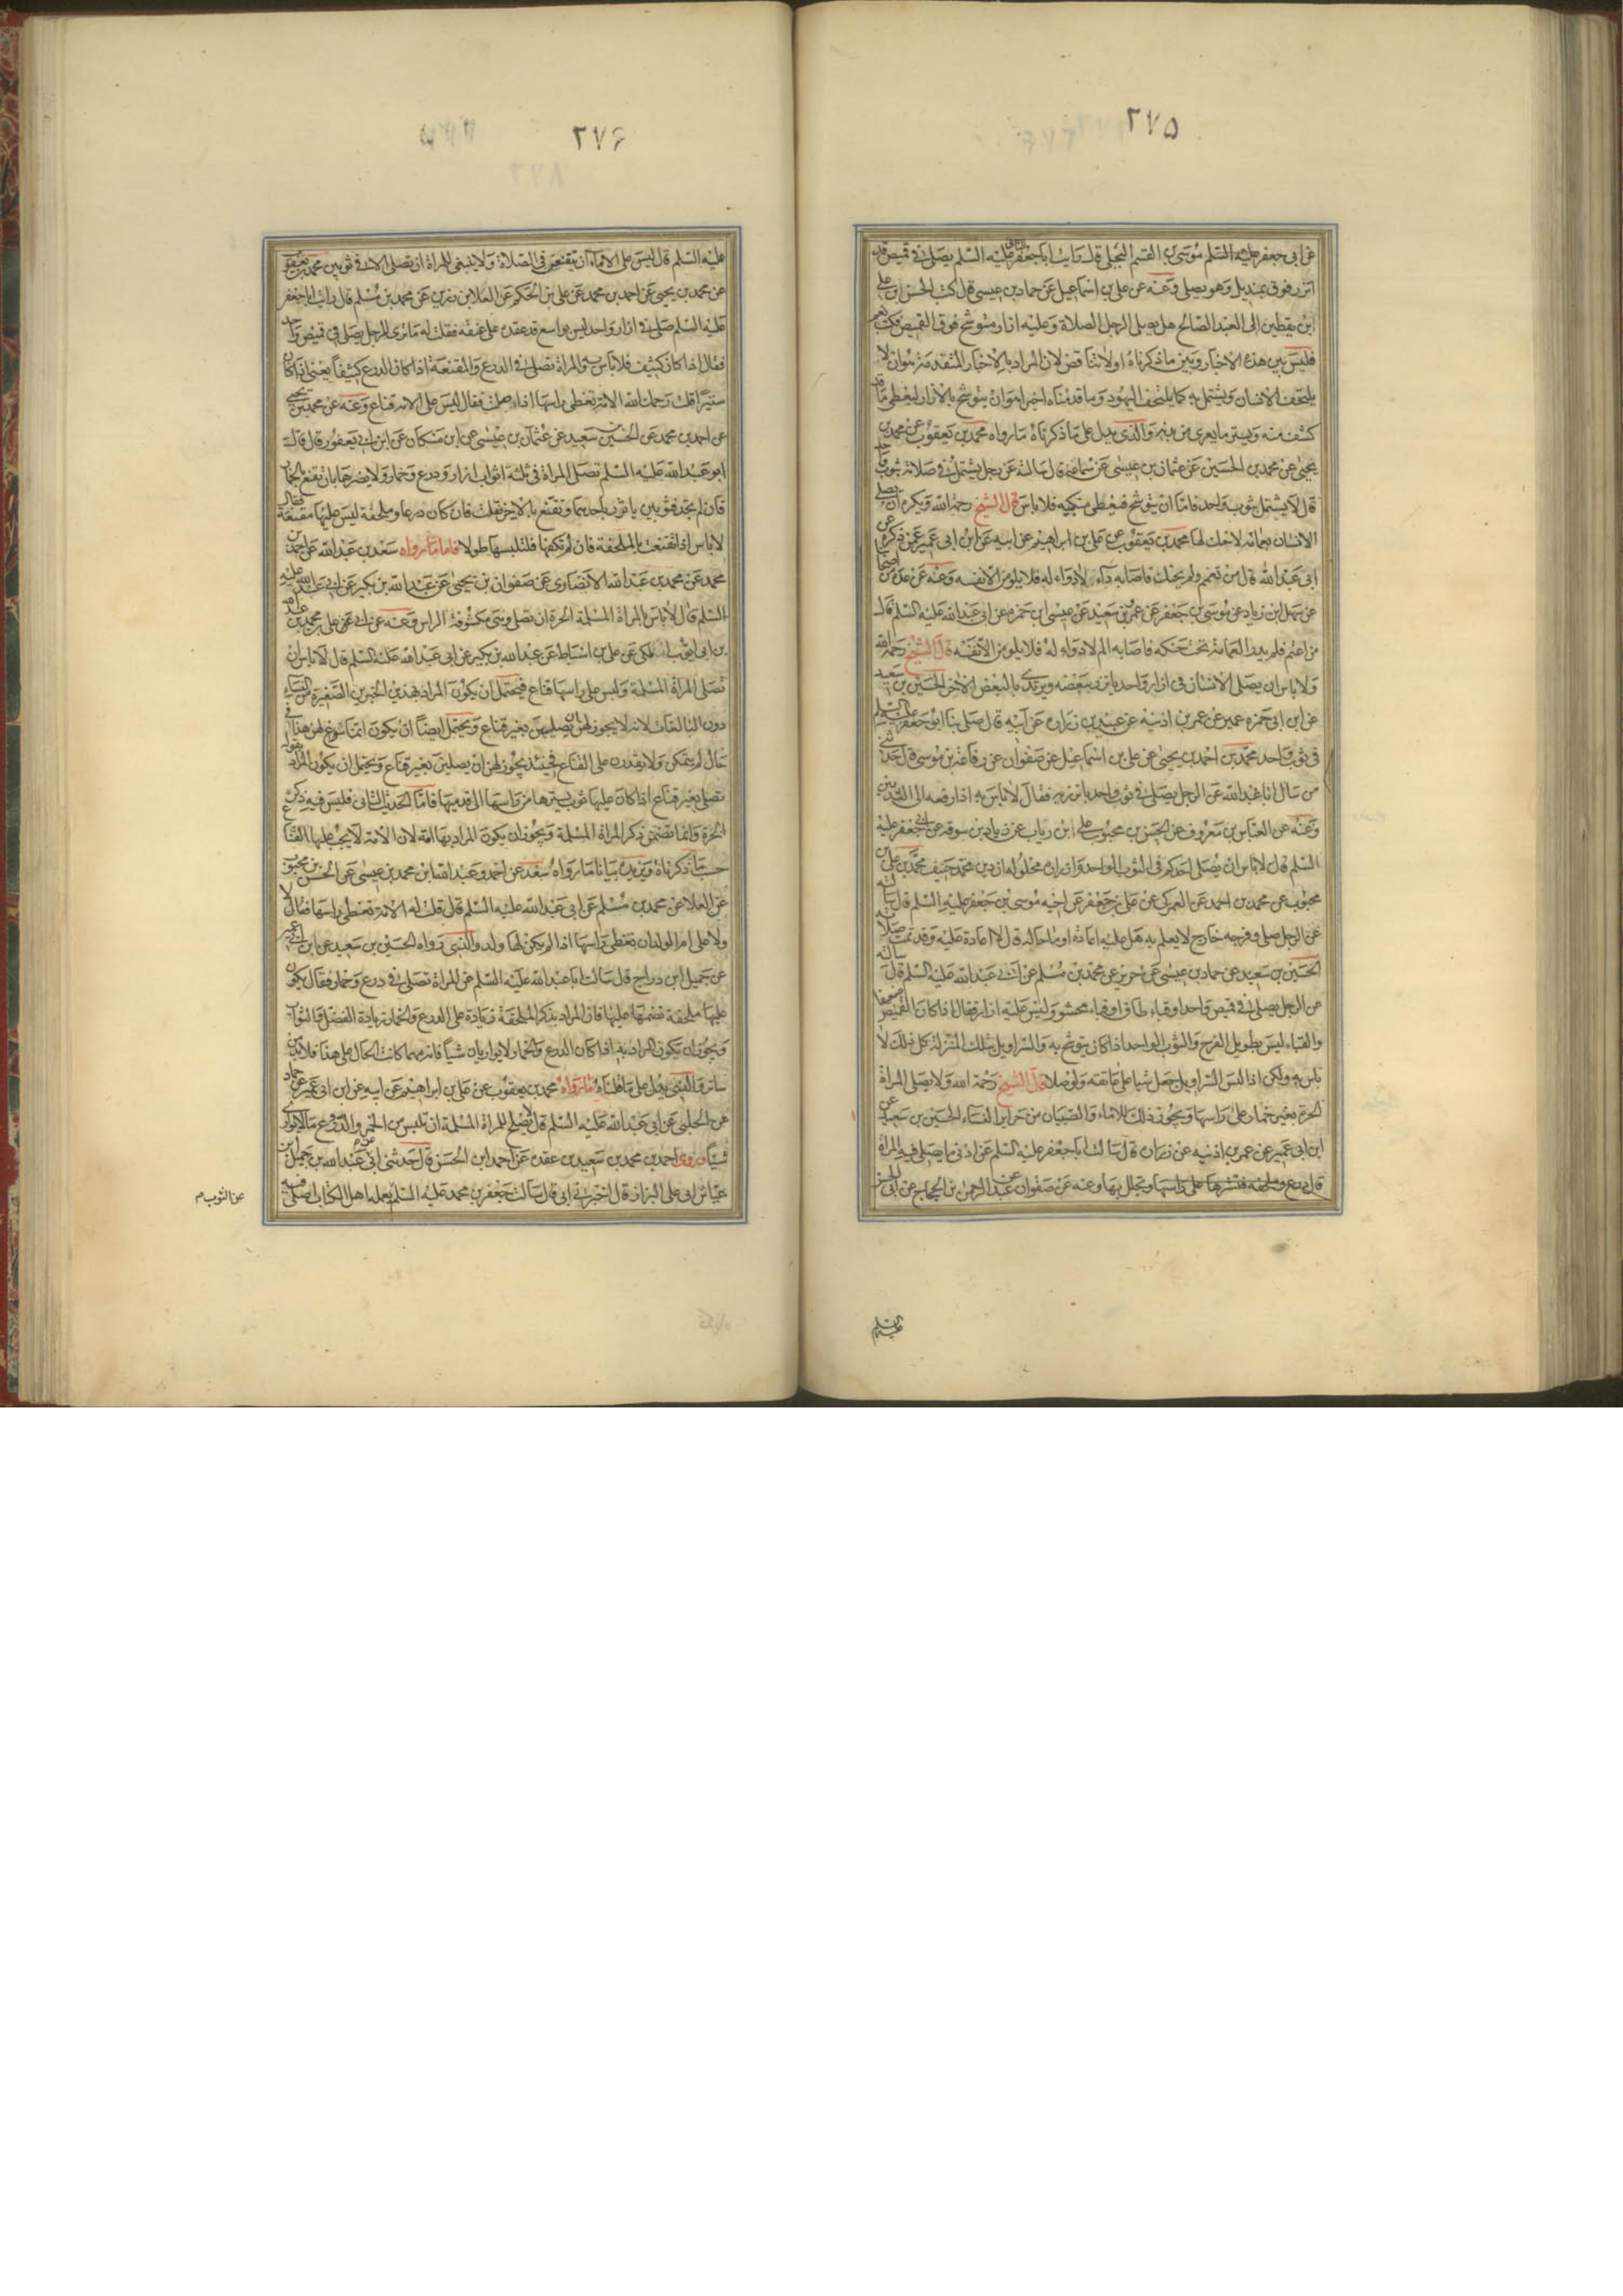 ٢٧۵
عن ابى جعفر عليه السلم موسى بن القسم البجلى قال رايت ابا جعفر الثانى عليه السلم يصلى فى قميص قد
اتزر فوقه بمنديل وهو يصلى وعنه عن على بن اسماعيل عن حماد بن عيسى قال كتب الحسن بن على
ابن يقطين الى العبد الصالح هل يصلى الرجل الصلاة وعليه ازار متوشح فوق القميص فكتب نعم
فليس بين هذه الاخبار وبين ما ذكرناه اولا تناقض لان المراد بالاخبار المتقدمة هو ان لا
يلتحف الانسان ويشتمل به كما يلتحف اليهود وما قدمناه اخيرا هو ان يتوشح بالازار ليغطى ما قد
كشف منه ويستر ما يعرى من بدنه والذى يدل على ما ذكرناه ما رواه محمد بن يعقوب عن محمد بن
يحيى عن محمد بن الحسين عن عثمان بن عيسى عن سماعة قال سالته عن رجل يشتمل فى صلاة بثوب واحد
قال لا يشتمل بثوب واحد فاما ان يتوشح فيغطى منكبيه فلا باس قال الشيخ رحمه الله ويكره ان يصلى
الانسان بعمامة لا حنك لها محمد بن يعقوب عن على بن ابراهيم عن ابيه عن ابن ابى عمير عمن ذكره عن
ابى عبد الله قال من تعمم ولم يحنك فاصابه داء لا دواء له فلا يلومن الا نفسه وعنه عن عدة من اصحابنا
عن سهل ابن زياد عن موسى بن جعفر عن عمرو بن سعيد عن عيسى ابن حمزه عن ابى عبد الله عليه السلم قال
من اعتم فلم يدر العمامة تحت حنكه فاصابه الم لا دواء له فلا يلومن الا نفسه قال الشيخ رحمه الله
ولا باس ان يصلى الانسان فى ازار واحد ياتزر ببعضه ويرتدى بالبعض الاخر الحسين بن سعيد
عن ابن ابى عمير عن عمر بن اذنيه عن عبيد بن زراره عن ابيه قال صلى بنا ابو جعفر عليه السلم
فى ثوب واحد محمد بن احمد بن يحيى عن على بن اسماعيل عن صفوان عن رفاعة بن موسى قال حدثنى
من سال ابا عبد الله عن الرجل يصلى فى ثوب واحد ياتزر به فقال لا باس به اذا رفعه الى الثديين
وعنه عن العباس بن معروف عن الحسن بن محبوب على ابن رياب عن زياد بن سوقه عن ابى جعفر عليه
السلم قال لا باس ان يصلى احدكم فى الثوب الواحد وازراره محلوله ان دين محمد حنيف محمد بن على بن
محبوب عن محمد بن احمد عن العمركى عن على بن جعفر عن اخيه موسى بن جعفر عليه السلم قال سالته
عن الرجل صلى وفرجه خارج لا يعلم به هل عليه اعادة او ما حاله قال لا اعادة عليه وقد تمت صلاته
الحسين بن سعيد عن حماد بن عيسى عن حريز عن محمد بن مسلم عن ابى عبد الله عليه السلم قال سالته
عن الرجل يصلى فى قميص واحد او قباء طاق او قباء محشو وليس عليه ازار فقال اذا كان القميص صفيقا
والقباء ليس بطويل الفرج والثوب الواحد اذا كان يتوشح به والسراويل بتلك المنزلة كل ذلك لا
باس به ولكن اذا لبس السراويل جعل شيا على عاتقه ولو حبلا قال الشيخ رحمة الله ولا يصلى المراة
الحرة بغير خمار على راسها ويجوز ذلك للاماء والصبيان من حراير النساء الحسين بن سعيد عن
ابن ابى عمير عن عمر بن اذنيه عن زراره قال سالت ابا جعفر عليه السلم عن ادنى ما يصلى فيه المراة
قال درع وملحفه فتنشرها على راسها وتجلل بها وعنه عن صفوان عن عبد الرحمن بن الحجاج عن ابى الحسن
عليه السلم
٢٧۶
عليه السلم قال ليس على الاماء ان يتقنعن فى الصلاة ولا ينبغى للمراة ان تصلى الا فى ثوبين محمد بن يعقوب
عن محمد بن يحيى عن احمد بن محمد عن على بن الحكم عن العلا بن رزين عن محمد بن مسلم قال رايت ابا جعفر
عليه السلم صلى فى ازار واحد ليس بواسع قد عقده على عنقه فقلت له ما ترى للرجل يصلى فى قميص واحد
فقال اذا كان كثيف فلا باس به والمراة تصلى فى الدرع والمقنعة اذا كان الدرع كثيفا يعنى اذا كان
ستيرا قلت رحمك الله الامة تغطى راسها اذا صلت فقال ليس على الامة قناع وعنه عن محمد بن يحيى
عن احمد بن محمد عن الحسين بن سعيد عن عثمان بن عيسى عن ابن مسكان عن ابن ابى يعفور قال قال
ابو عبد الله عليه السلم تصلى المراة فى ثلثة اثواب ازار ودرع وخمار ولا يضرها بان تقنع بالخمار
فان لم تجد فثوبين ياتزر باحدهما وتقنع بالاخر قلت فان كان درعا وملحفة ليس عليها مقنعة فقال
لا باس اذا تقنعت بالملحفة فان لم تكفها فلتلبسها طولا فاما ما رواه سعد بن عبد الله عن احمد بن
محمد عن محمد بن عبد الله الانصارى عن صفوان بن يحيى عن عبد الله بن بكير عن ابى عبد الله عليه
السلم قال لا باس بالمراة المسلمة الحرة ان تصلى وهى مكشوفة الراس وعنه عن ابى على محمد بن عبد الله
بن ابى ايوب المكى عن على بن اسباط عن عبد الله بن بكير عن ابى عبد الله عليه السلم قال لا باس ان
تصلى المراة المسلمة وليس على راسها قناع فيحتمل ان يكون المراد بهذين الخبرين الصغيرة من النساء
دون البالغات لانه لا يجوز لهن ان يصلين بغير قناع ويحتمل ايضا ان يكون انما سوغ لهن هذا فى
حال لم يتمكن ولا يقدرن على القناع فحينئذ يجوز لهن ان يصلين بغير قناع ويحتمل ان يكون المراد بقوله
تصلى بغير قناع اذا كان عليها ثوب يسترها من راسها الى قدميها فاما الحديث الثانى فليس فيه ذكر
الحرة وانما تضمن ذكر المراة المسلمة ويجوز ان يكون المراد بها امة لان الامة لا يجب عليها القناع
حسب ما ذكرناه ويزيده بيانا ما رواه سعد عن احمد وعبد الله ابن محمد بن عيسى عن الحسن بن محبوب
عن العلا عن محمد بن مسلم عن ابى عبد الله عليه السلم قال قلت له الامة تغطى راسها فقال لا
ولا على ام الولد ان تغطى راسها اذا لم يكن لها ولد والذى رواه الحسين بن سعيد عن ابن ابى عمير
عن جميل ابن دراج قال سالت ابا عبد الله عليه السلم عن المراة تصلى فى درع وخمار فقال يكون
عليها ملحفة تضمها عليها فان المراد بذكر الملحفة زيادة على الدرع والخمار زيادة الفضل والثواب
ويجوز ان يكون المراد به اذا كان الدرع والخمار لا يواريان شيا فانه مهما كانت الحال على هذا فلا بد من
ساتر والذى يدل على ما قلناه ما رواه محمد بن يعقوب عن على بن ابراهيم عن ابيه عن ابن ابى عمير عن حماد
عن الحلبى عن ابى عبد الله عليه السلم قال لا يصلح للمراة المسلمة ان تلبس من الخمر والدروع ما لا يوارى
شيا وروى احمد بن محمد بن سعيد بن عقدة عن احمد ابن الحسن قال حدثنى ابى عن عبد الله بن جميل ابن
عياش ابى على البزاز قال اخبرنى ابى قال سالت جعفر بن محمد عليه السلم يعمله اهل الكتاب اصلى فيه
عن الثوب م